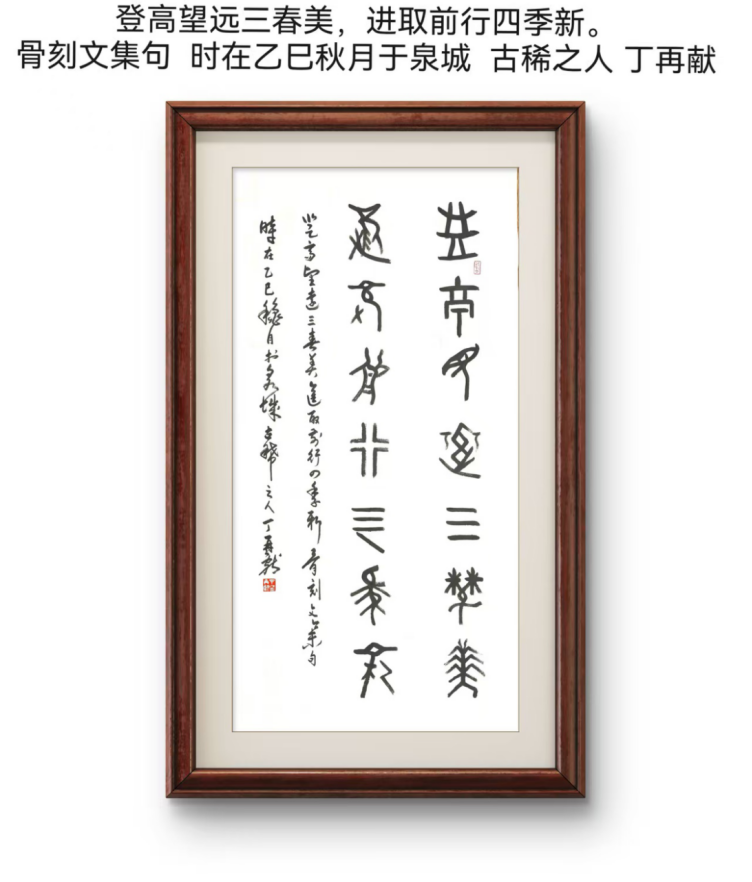 登高望远三春美，进取前行四季新。
骨刻文集句 时在乙巳秋月于泉城 古稀之人 丁再献
登高望遠三春美
進取前行四季新
登高望遠三春美進取前行四季新 骨刻文集句
時在乙巳穐月於泉城 古稀之人丁再献